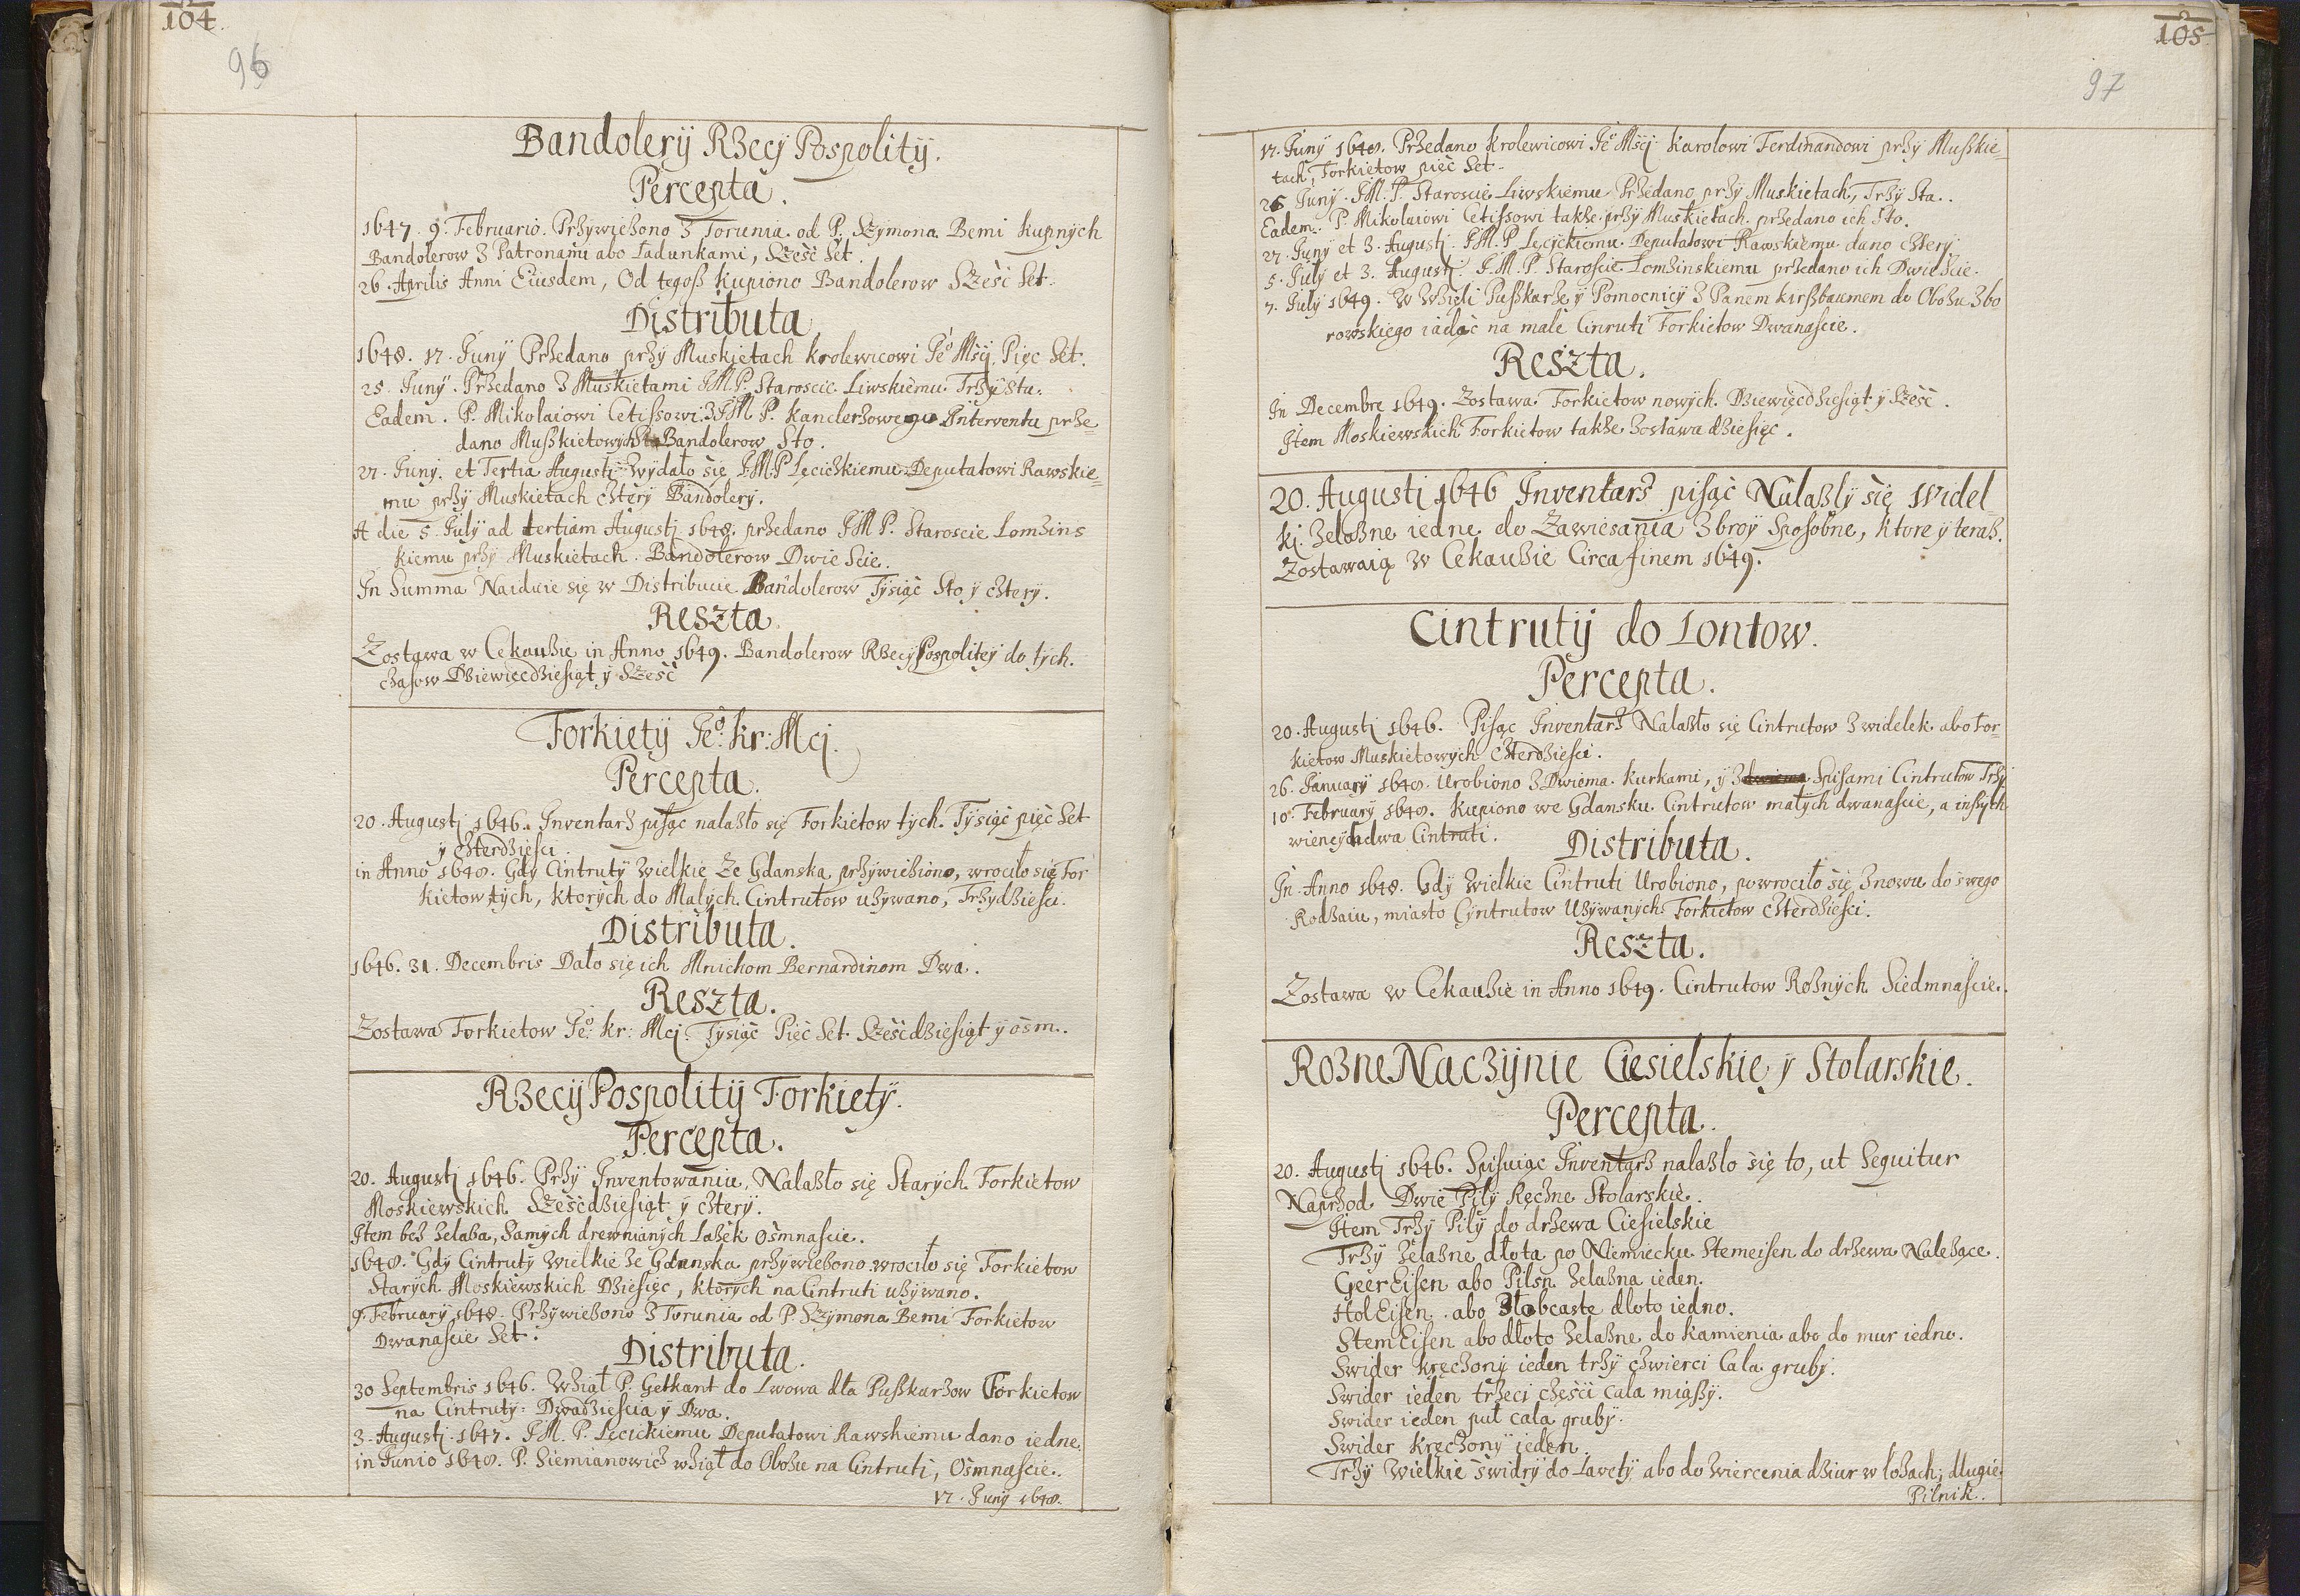 104.
96
Bandolerÿ Rzecÿ Pospolitÿ.
Percepta.
1647. 9. Februario. Przÿwieźono z Torunia. od P. Szÿmona Bemi kupnÿch
Bandolerow z Patronami abo Ładunkami, Sześć Set.
26. Aprilis Anni Eiusdem, Od tegosz kupiono Bandolerow Sześć Set.
Distributa
1648. 17. Junÿ Przedano przÿ Muskietach krolewicowi Je͠o Mścj. Pięc Set.
25. Junÿ. Przedano z Muskietami JM.P. Staroscie Liwskiemu. Trzÿ Sta.
Eadem. P. Mikolaiowi Cetissowi z JM P. kanclerzowego Interventu prze
dano Muszkietowÿch Bandolerow Sto.
27. Junj. et Tertia Augustj Wÿdało się JM.P Lęcickiemu Deputatowi Rawskie=
mu przÿ Muskietach cztery Bandolerÿ.
A die 5. Julÿ ad tertiam Augustj 1648. przedano JM P. Staroscie Łomżins
kiemu przÿ Muskietach. Bandolerow Dwie Scie.
In Summa Naiduie się w Distribucie Bandolerow Tÿsiąć Sto ÿ czterÿ.
Reszta
Zostawa w Cekauzie in Anno 1649. Bandolerow Rzecÿ Pospolitej do tÿch.
czasow Dziewięcdziesiąt ÿ Sześć
Forkietÿ Je͠o: kr: Mcj.
Percepta.
20. Augustj 1646. Inventarz pisąc nalazło się Forkietow tÿch. Tÿsiąć pięć Set
ÿ czterdziesci.
in Anno 1648. Gdÿ Cintrutÿ Wielkie Ze Gdanska przÿwieziono, wrociło się For
kietow tÿch, ktorÿch do Małÿch Cintrutow użÿwano, Trzÿdziesci.
Distributa.
1646. 31. Decembris Dało się ich Mnichom Bernardinom Dwa.
Reszta.
Zostawa Forkietow Je͠o: kr: Mcj. Tÿsiąć Pięć Set. Sześćdziesiąt ÿ ośm.
Rzecÿ Pospolitÿ Forkietÿ.
Percepta.
20. Augustj 1646. Przÿ Inventowaniu, Nalazło się Starÿch Forkietow
Moskiewskich Sześćdziesiąt ÿ czterÿ.
Item bez żelaza, Samÿch drewnianÿch Lażek ośmnascie.
1648. Gdÿ Cintrutÿ Wielkie ze Gdanska przÿwiezono wrociło się Forkietow
Starÿch Moskiewskich Dziesięć, ktorÿch na Cintruti użÿwano.
9. Februarÿ 1648. Przÿwieźono z Torunia od P. Szÿmona Bemi Forkietow
Dwanascie Set.
Distributa.
30 Septembris 1646. Wziął P. Getkant do Lwowa dla Puszkarzow Forkietow
na Cintrutÿ: Dwadziescia ÿ Dwa.
3. Augustj 1647. JM. P. Lęcickiemu Deputatowi Rawskiemu dano iedne.
in Junio 1648. P. Siemianowicz wziął do Obozu na Cintruti, Ośmnascie.
17. Junÿ 1648.
105.
97
17. Junÿ 1648. Przedano krolewicowi Je͠o Mścj karolowi Ferdinandowi przÿ Muszkie=
tach, Forkietow pięć Set.
25 Junÿ. JM. P. Staroscie Liwskiemu Przedano przÿ Muskietach, Trzÿ Sta.
Eadem. P. Mikolaiowi Cetissowi także przÿ Muskietach przedano ich Sto.
27. Junÿ et 3. Augustj. JM.P Lęcickiemu Deputatowi Rawskiemu dano czterÿ
5. Julÿ et 3. Augustj. J.M. P. Staroscie Łomżinskiemu przedano ich Dwiescie.
7. Julÿ 1649. Wzięli Puszkarze ÿ Pomocnicÿ z Panem kirszbaumem do Obozu Zbo
rowskiego iadąć na małe Cinruti Forkietow Dwanascie.
Reszta.
In Decembre 1649. Zostawa Forkietow nowÿch Dziewięcdziesiąt ÿ Sześć.
Item Moskiewskich Forkietow także Zostawa dziesięc.
20. Augusti 1646 Inventarz pisąć Nalazlÿ się Widel=
kj. Zelazne iedne do Zawiesania Zbroÿ Sposobne, ktore ÿ teraz.
Zostawaią w Cekauzie Circa finem 1649.
Cintrutÿ do Lontow.
Percepta.
20. Augustj 1646. Pisąc Inventarz Nalazło się Cintrutow z widelek abo for=
kietow Muskietowÿch Czterdziesci.
26. Januarÿ 1648. Urobiono z Dwiema kurkami, ÿ z Spisami Cintrutow Trzÿ
10. Februarÿ 1648. kupiono we Gdansku Cintrutow małÿch dwanascie, a inszÿch
wiencÿch dwa Cintruti.
Distributa.
In Anno 1648. Gdÿ Wielkie Cintruti Urobiono, powrociło się znowu do swego
Rodzaiu, miasto Cÿntrutow Użÿwanÿch Forkietow czterdziesci.
Reszta.
Zostawa w Cekauzie in Anno 1649. Cintrutow Roznÿch Siedmnascie.
Rozne Naczÿnie Ciesielskie ÿ Stolarskie.
Percepta.
20. Augustj 1646. Spisuiąc Inventarz nalazlo się to, ut Sequitur
Naprzod Dwie Piłÿ Ręczne Stolarskie.
Item Trzÿ Piłÿ do drzewa Ciesielskie
Trzÿ żelazne dłota po Niemiecku Stemeisen do drzewa Należące.
GeerEisen abo Pilsn Zelazna ieden.
HolEisen. abo Złobcaste dłoto iedno.
StemEisen abo dłoto żelazne do kamienia abo do mur iedno.
Swider kręczonÿ ieden trzÿ cwierci Cala grubÿ.
Swider ieden trzeci częsci cala miąszÿ.
Swider ieden puł cala grubÿ.
Swider kręczonÿ ieden.
Trzÿ Wielkie swidrÿ do Lawetÿ abo do wiercenia dziur w łożach; długie.
Pilnik.